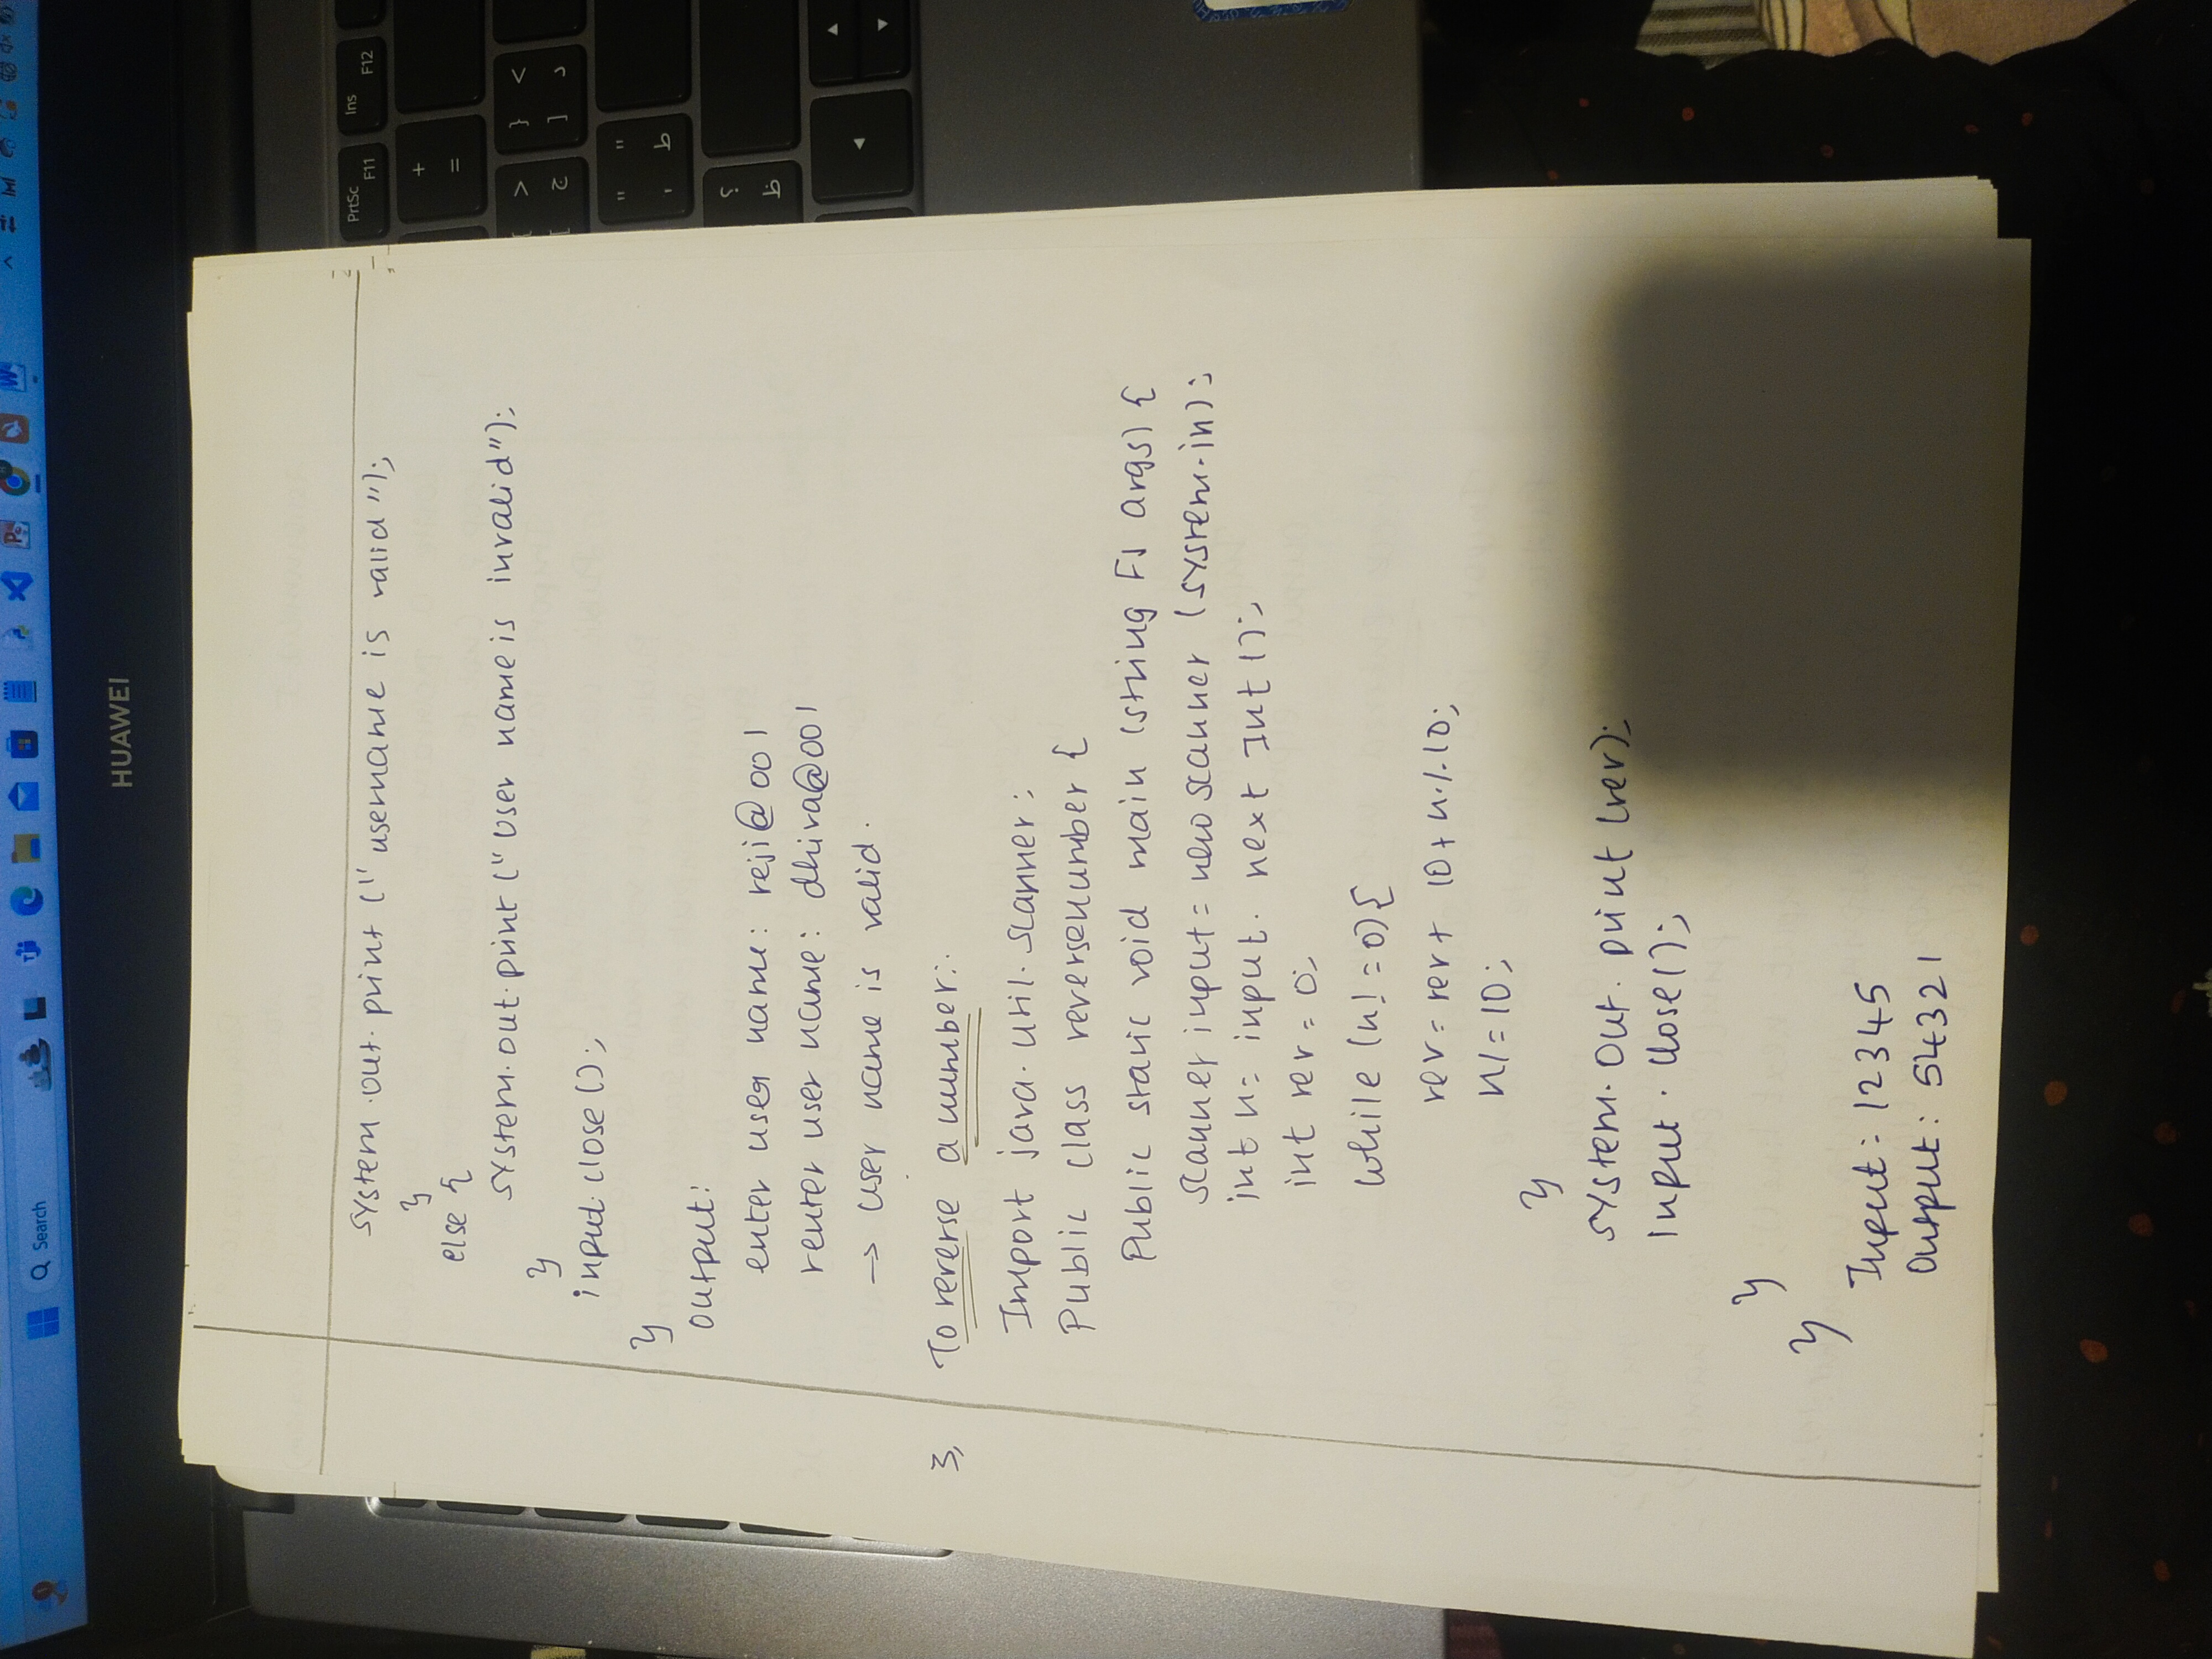 Search
HUAWEI
PrtSc
F11
Ins
F12
system.out.print ("username is valid");
}
else {
system.out.print ("User name is invalid");
}
input.close();
}
output:
enter user name: reji@001
renter user name: dhiva@001
→ User name is valid.
3, To reverse a number:.
Import java.util.scanner;
Public class reversenumber {
Public static void main (string [] args) {
scanner input = new scanner (system.in);
int n = input. next Int ();
int rev = 0;
while (n! = 0) {
rev = rev + 10 + n % 10;
n/=10;
}
system. out. print (rev);
Input. close();
}
}
Input: 12345
Output: 54321